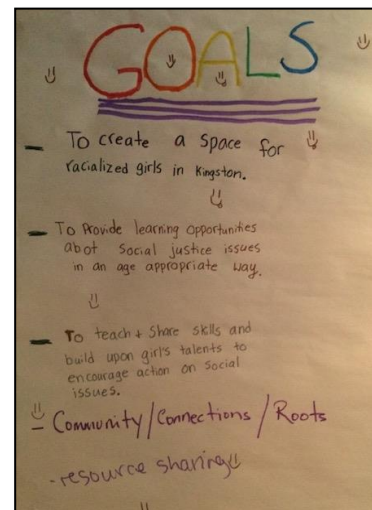 GOALS
- To create a space for
racialized girls in Kingston.
- To Provide learning opportunities
abot social justice issues
in an age appropriate way.
- To teach + share skills and
build upon girl's talents to
encourage action on social
issues.
- Community/Connections/Roots
- resource sharing